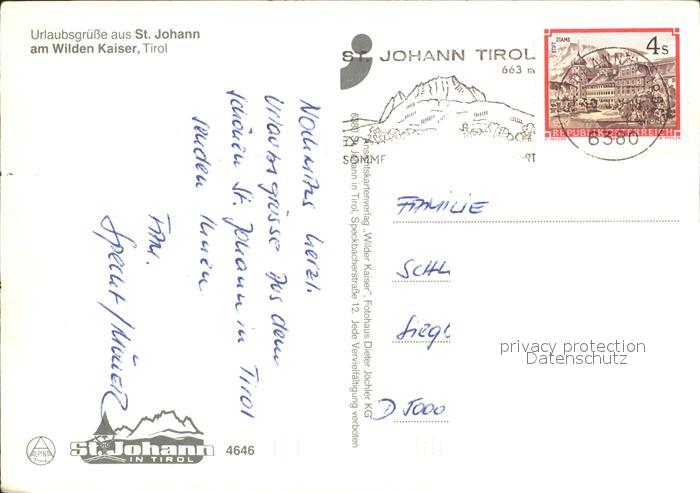 Urlaubsgrüße aus St. Johann
am Wilden Kaiser, Tirol
ST. JOHANN TIROL
663 m
SOMME
RT
STIFT STAMS
4 S
REPUBLIK ÖSTERREICH
6380
Nochmals herzl.
Urlaubsgrüsse aus dem
schönen St. Johann in Tirol
senden Ihnen
Fam.
Specht/Müller
Ansichtskartenverlag „Wilder Kaiser", Fotohaus Dieter Jöchler KG
6380 St. Johann in Tirol, Speckbacherstraße 12. Jede Vervielfältigung verboten
FAMILIE
SCHL
Siegl
D 5000
privacy protection
Datenschutz
ALPINA
St. Johann
IN TIROL
4646